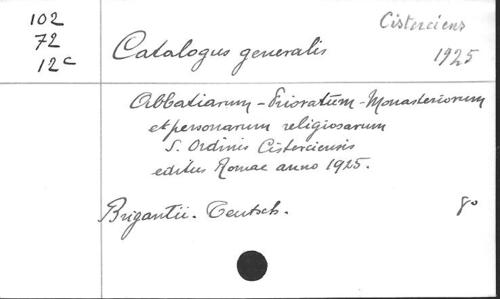 102
72
12c
Cisterciens
1925
Catalogus generalis
Abbatiarum - Prioratum - Monasteriorum
et personarum religiosarum
S. Ordinis Cisterciensis
editus Romae anno 1925.
Brigantii. Teutsch. 8o